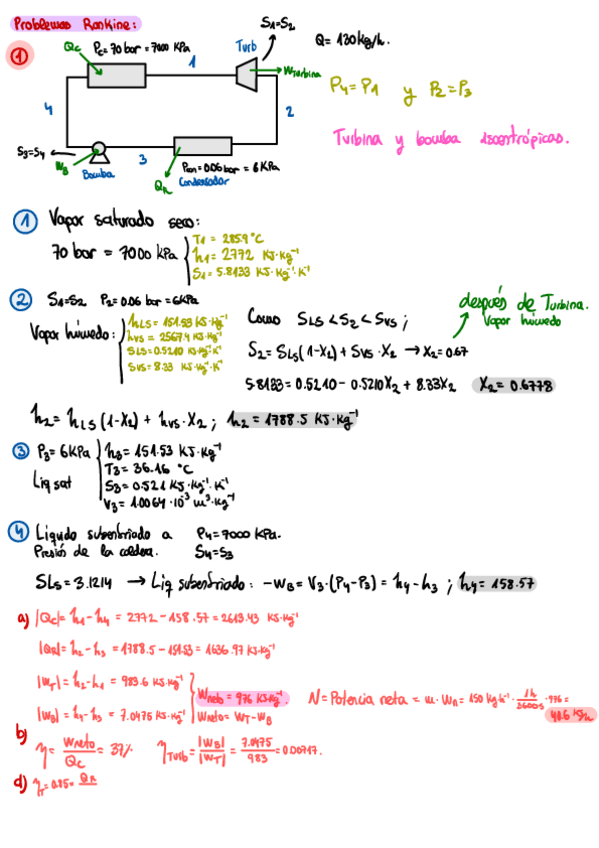 Problemas Rankine:
S1=S2
①
Qc
Pc = 70 bar = 7000 KPa
Turb
Q= 130kg/h.
1
WTurbina
P4=P1 y P2=P3
4
2
Turbina y bomba isoentrópicas.
S3=S4
WB
Bomba
3
Pcon = 0.06 bar = 6 KPa
Condensador
QR
① Vapor saturado seco:
70 bar = 7000 kPa
T1 = 285.9°C
h1 = 2772 KJ·Kg⁻¹
S1 = 5.8133 KJ·Kg⁻¹·K⁻¹
② S1=S2 P2=0.06 bar=6KPa
Vapor húmedo:
hLS = 151.53 KJ·Kg⁻¹
hVS = 2567.4 KJ·Kg⁻¹
SLS=0.5210 KJ·Kg⁻¹K⁻¹
SVS= 8.33 KJ·Kg⁻¹K⁻¹
Como SLS < S2 < SVS ;
después de Turbina.
Vapor húmedo
S2 = SLS(1-X2) + SVS·X2 → X2=0.67
5.8133 = 0.5210 - 0.5210X2 + 8.33X2 X2 = 0.6778
h2 = hLS(1-X2) + hVS·X2 ; h2 = 1788.5 KJ·Kg⁻¹
③ P3=6KPa
Liq sat
h3= 151.53 KJ·Kg⁻¹
T3= 36.16 °C
S3= 0.521 KJ·Kg⁻¹·K⁻¹
V3= 1.0064·10⁻³ m³·Kg⁻¹
④ Líquido subenfriado a P4=7000 KPa.
Presión de la caldera. S4=S3
SLS = 3.1214 → Liq subenfriado: -WB = V3·(P4-P3) = h4-h3 ; h4 = 158.57
a) |Qc|= h1-h4 = 2772-158.57 = 2613.43 KJ·Kg⁻¹
|QR|= h2-h3 = 1788.5-151.53= 1636.97 KJ·Kg⁻¹
|WT| = h2-h1 = 983.6 KJ·Kg⁻¹
|WB| = h4-h3 = 7.0475 KJ·Kg⁻¹
Wneto = 976 KJ·Kg⁻¹.
Wneto= WT-WB
N= Potencia neta = m·Wn = 150 kg·h⁻¹ · 1h/3600s · 976 =
b)
η = Wneto/Qc = 37%
ηTurb = |WB|/|WT| = 7.0475/983 = 0.00717.
d) ηT = 0.85 = QR